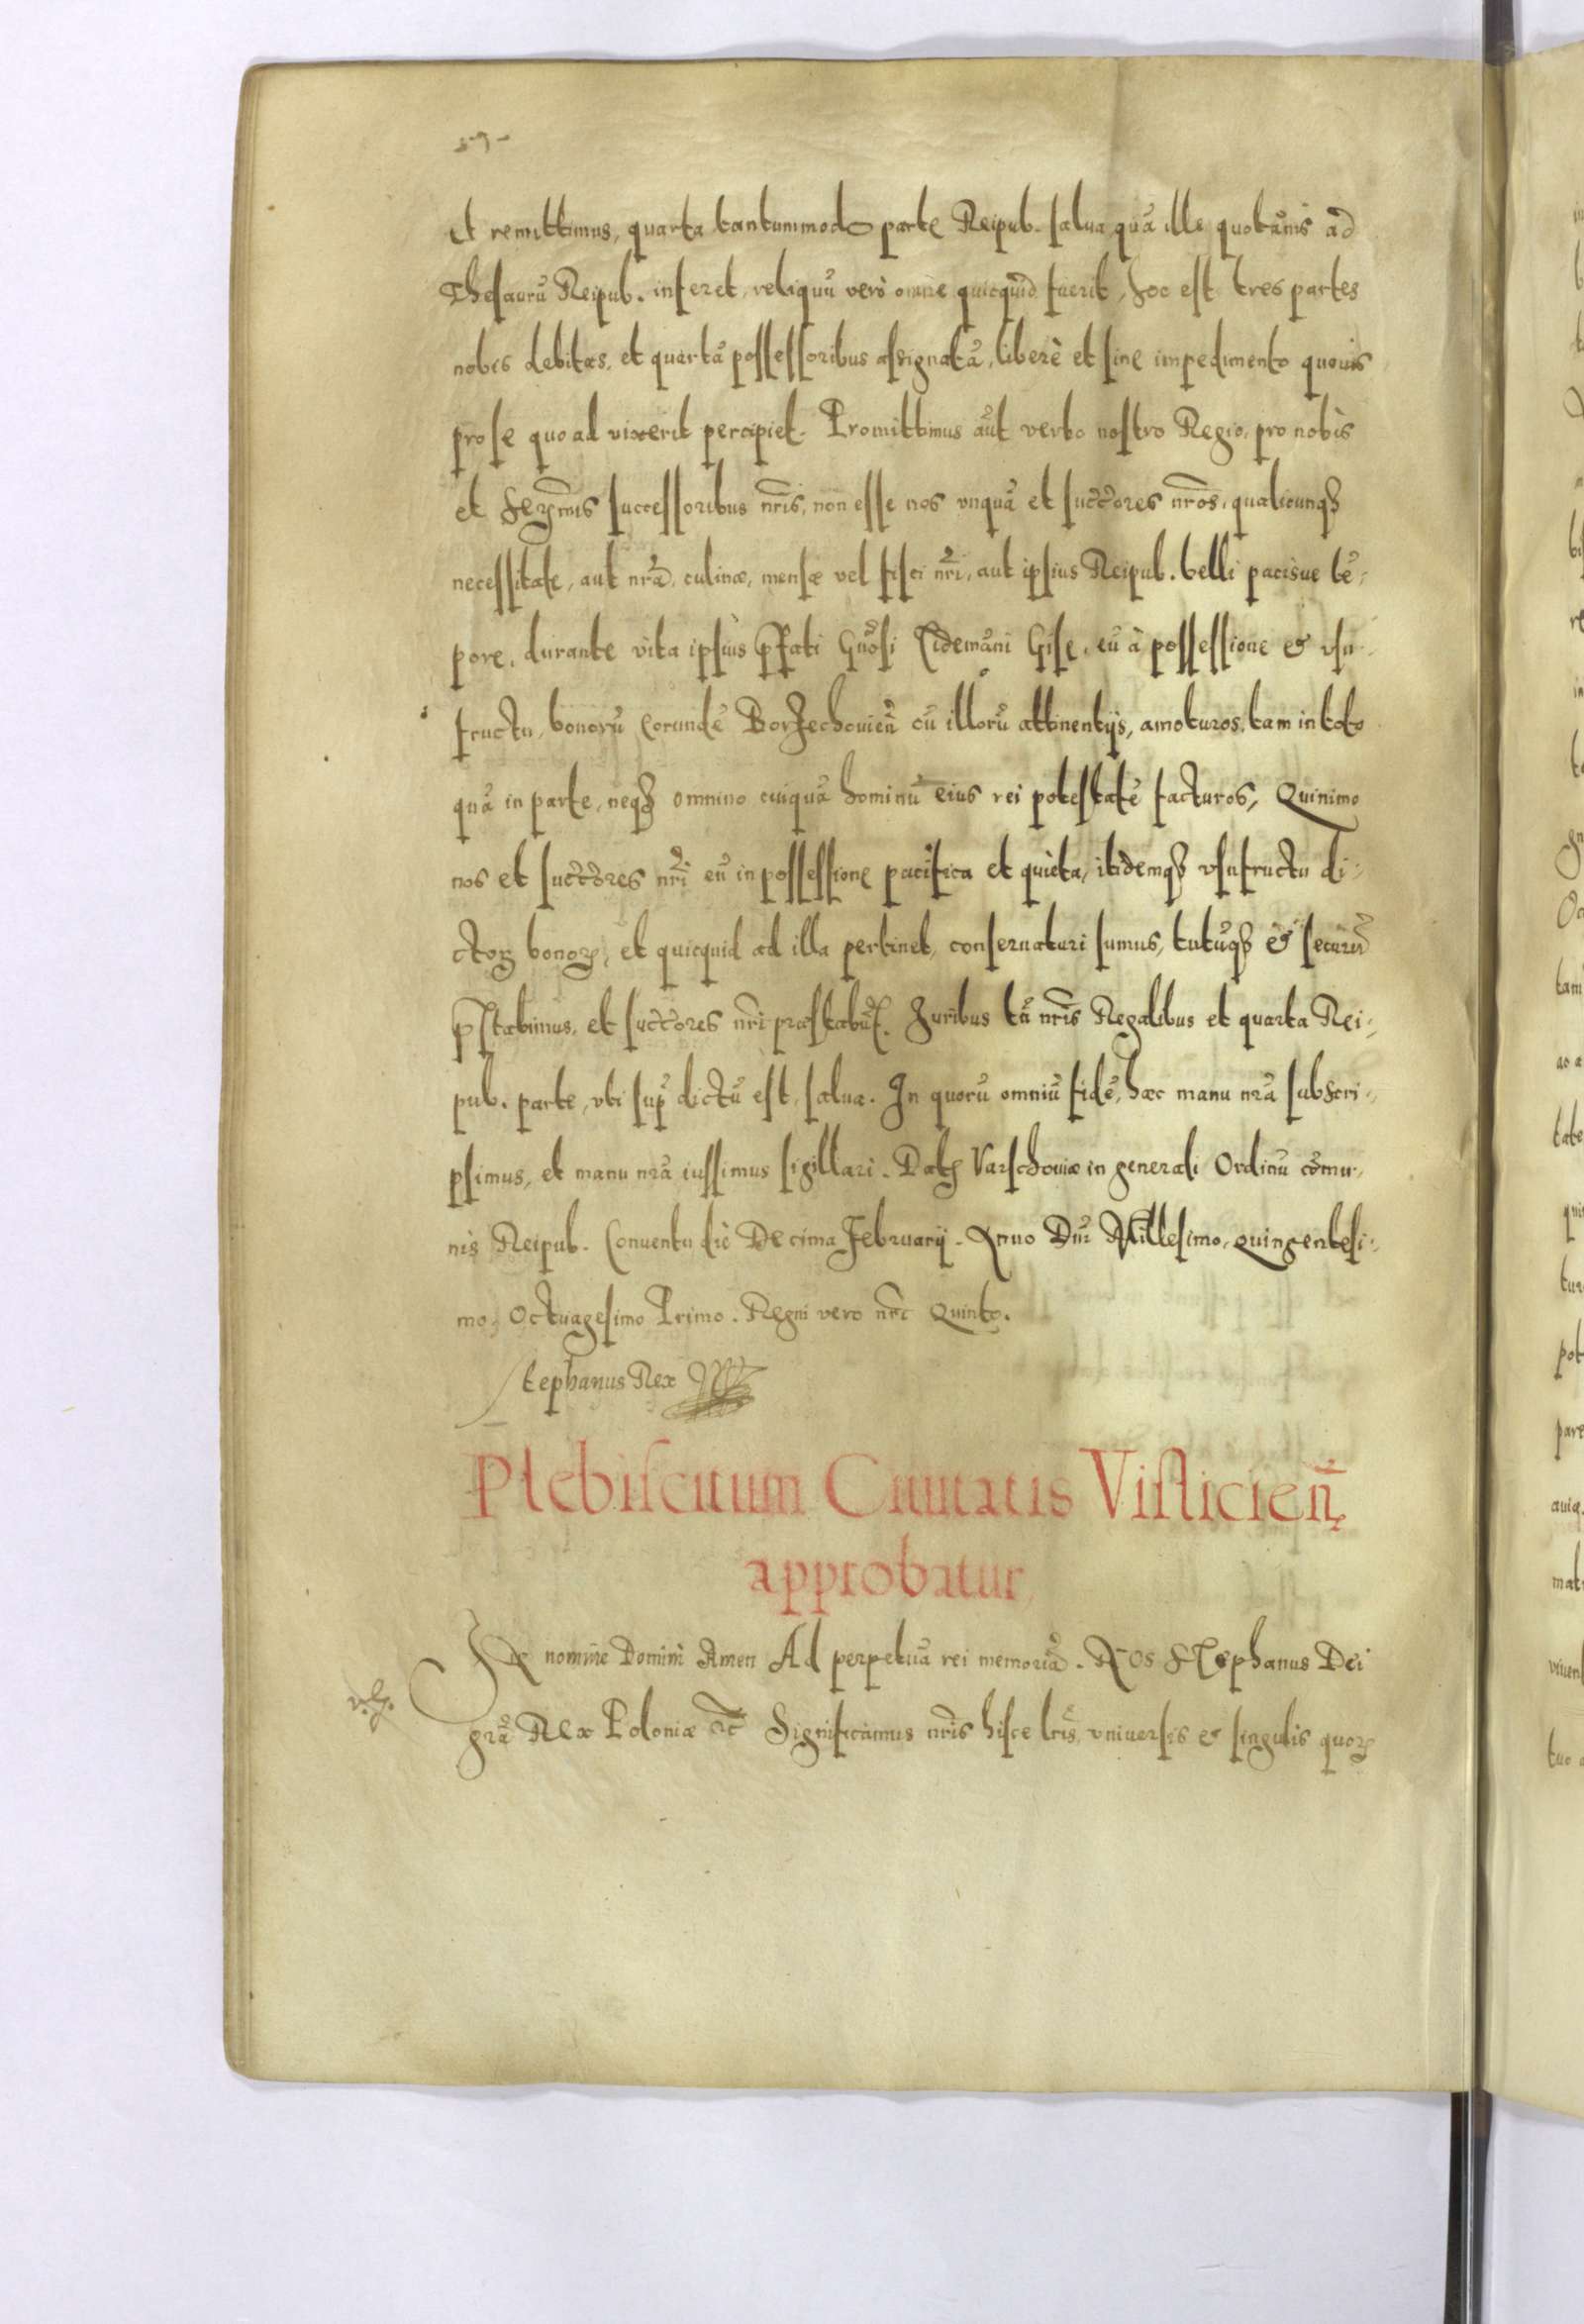 et remittimus, quarta tantummodo parte Reipub. salua quã ille quotãnis ad
Thesaurũ Reipub. inferet, reliquũ verò omne quicquid fuerit, hoc est tres partes
nobis debitas, et quartã possessoribus assignatã, liberè et sine impedimento quouis
pro se quoad vixerit percipiet. Promittimus aũt verbo nostro Regio, pro nobis
et Serẽmis successoribus nr̃is, non esse nos vnquã et succ̃ores nr̃os, qualicunqꝫ
necessitate, aut nrã, culinæ, mensæ vel fisci nr̃i, aut ipsius Reipub. belli pacisue tẽ,,
pore, durante vita ipsius p̃fati Gnõsi Tidemãni Gise, eũ à possessione et vsu
fructu, bonorũ eorundẽ Borzechouieñ cũ illorũ attinentijs, amoturos, tam in toto
quã in parte, neqꝫ omnino cuiquã hominũ eius rei potestatẽ facturos, Quinimo
nos et succ̃ores nr̃i eũ in possessione pacifica et quieta, itidemqꝫ vsufructu di,,
ctoꝝ bonoꝝ, et quicquid ad illa pertinet, conseruaturi sumus, tutũqꝫ et securũ
p̃stabimus, et succ̃ores nr̃i præstabũt. Juribus tñ nr̃is Regalibus et quarta Rei,,
pub. parte, vti sup̃ dictũ est, salua. In quorũ omniũ fidẽ, hæc manu nrã subscri,,
psimus, et manu nrã iussimus sigillari. Datꝭ Varschouiæ in generali Ordinũ cõmu,,
nis Reipub. Conuentu die Decima February. Anno Dñi Millesimo, quingentesi,,
mo, Octuagesimo Primo. Regni vero nr̃i Quinto.
Stephanus Rex
Plebiscitum Ciuitatis Visliciẽn̄
approbatur
In nomine Domini Amen Ad perpetuã rei memoriã. Nos Stephanus Dei
grã Rex Poloniæ etc̃ Significamus nr̃is hisce lrĩs, vniuersis et singulis quoꝝ